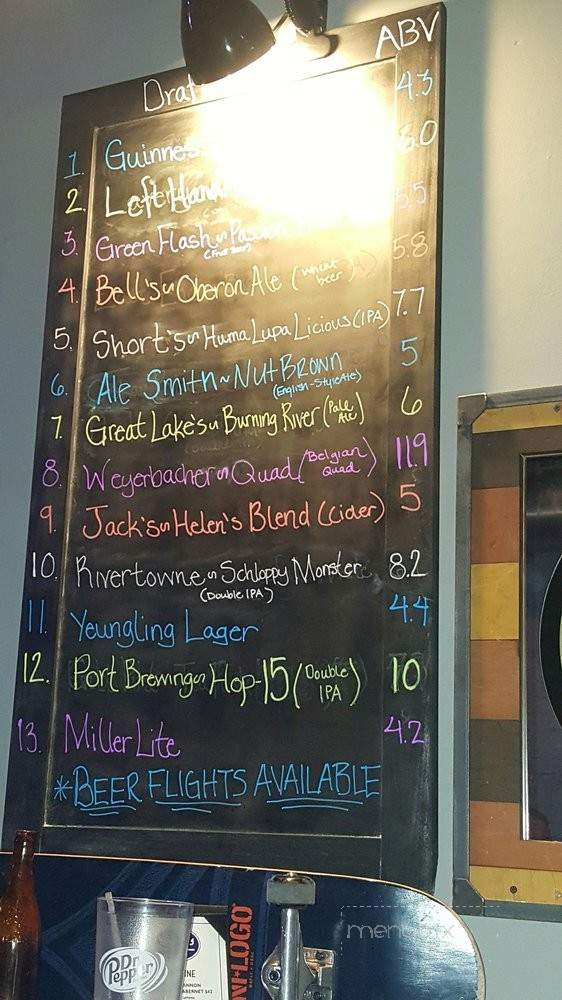 ABV
4.3
1. Guinness
6.0
2. Left Hand
5.5
3. Green Flash ~
4. Bell's ~ Oberon Ale (wheat beer) 5.8
5. Short's ~ Huma Lupa Licious (IPA) 7.7
6. Ale Smith ~ Nut Brown 5
(English-Style Ale)
7. Great Lake's ~ Burning River (Pale Ale) 6
8. Weyerbacher ~ Quad (Belgian Quad) 11.9
9. Jack's ~ Helen's Blend (Cider) 5
10. Rivertowne ~ Schloppy Monster 8.2
(Double IPA)
11. Yeungling Lager 4.4
12. Port Brewing ~ Hop-15 (Double IPA) 10
13. Miller Lite 4.2
*BEER FLIGHTS AVAILABLE
Dr Pepper
NFLOGO
menupix